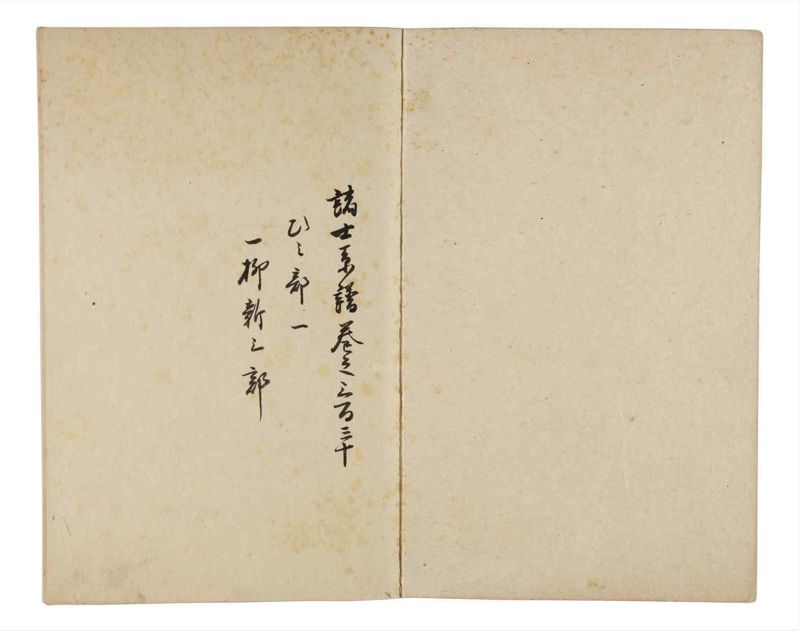 諸士系譜巻之三百三十
ひ之部一
一柳新三郎